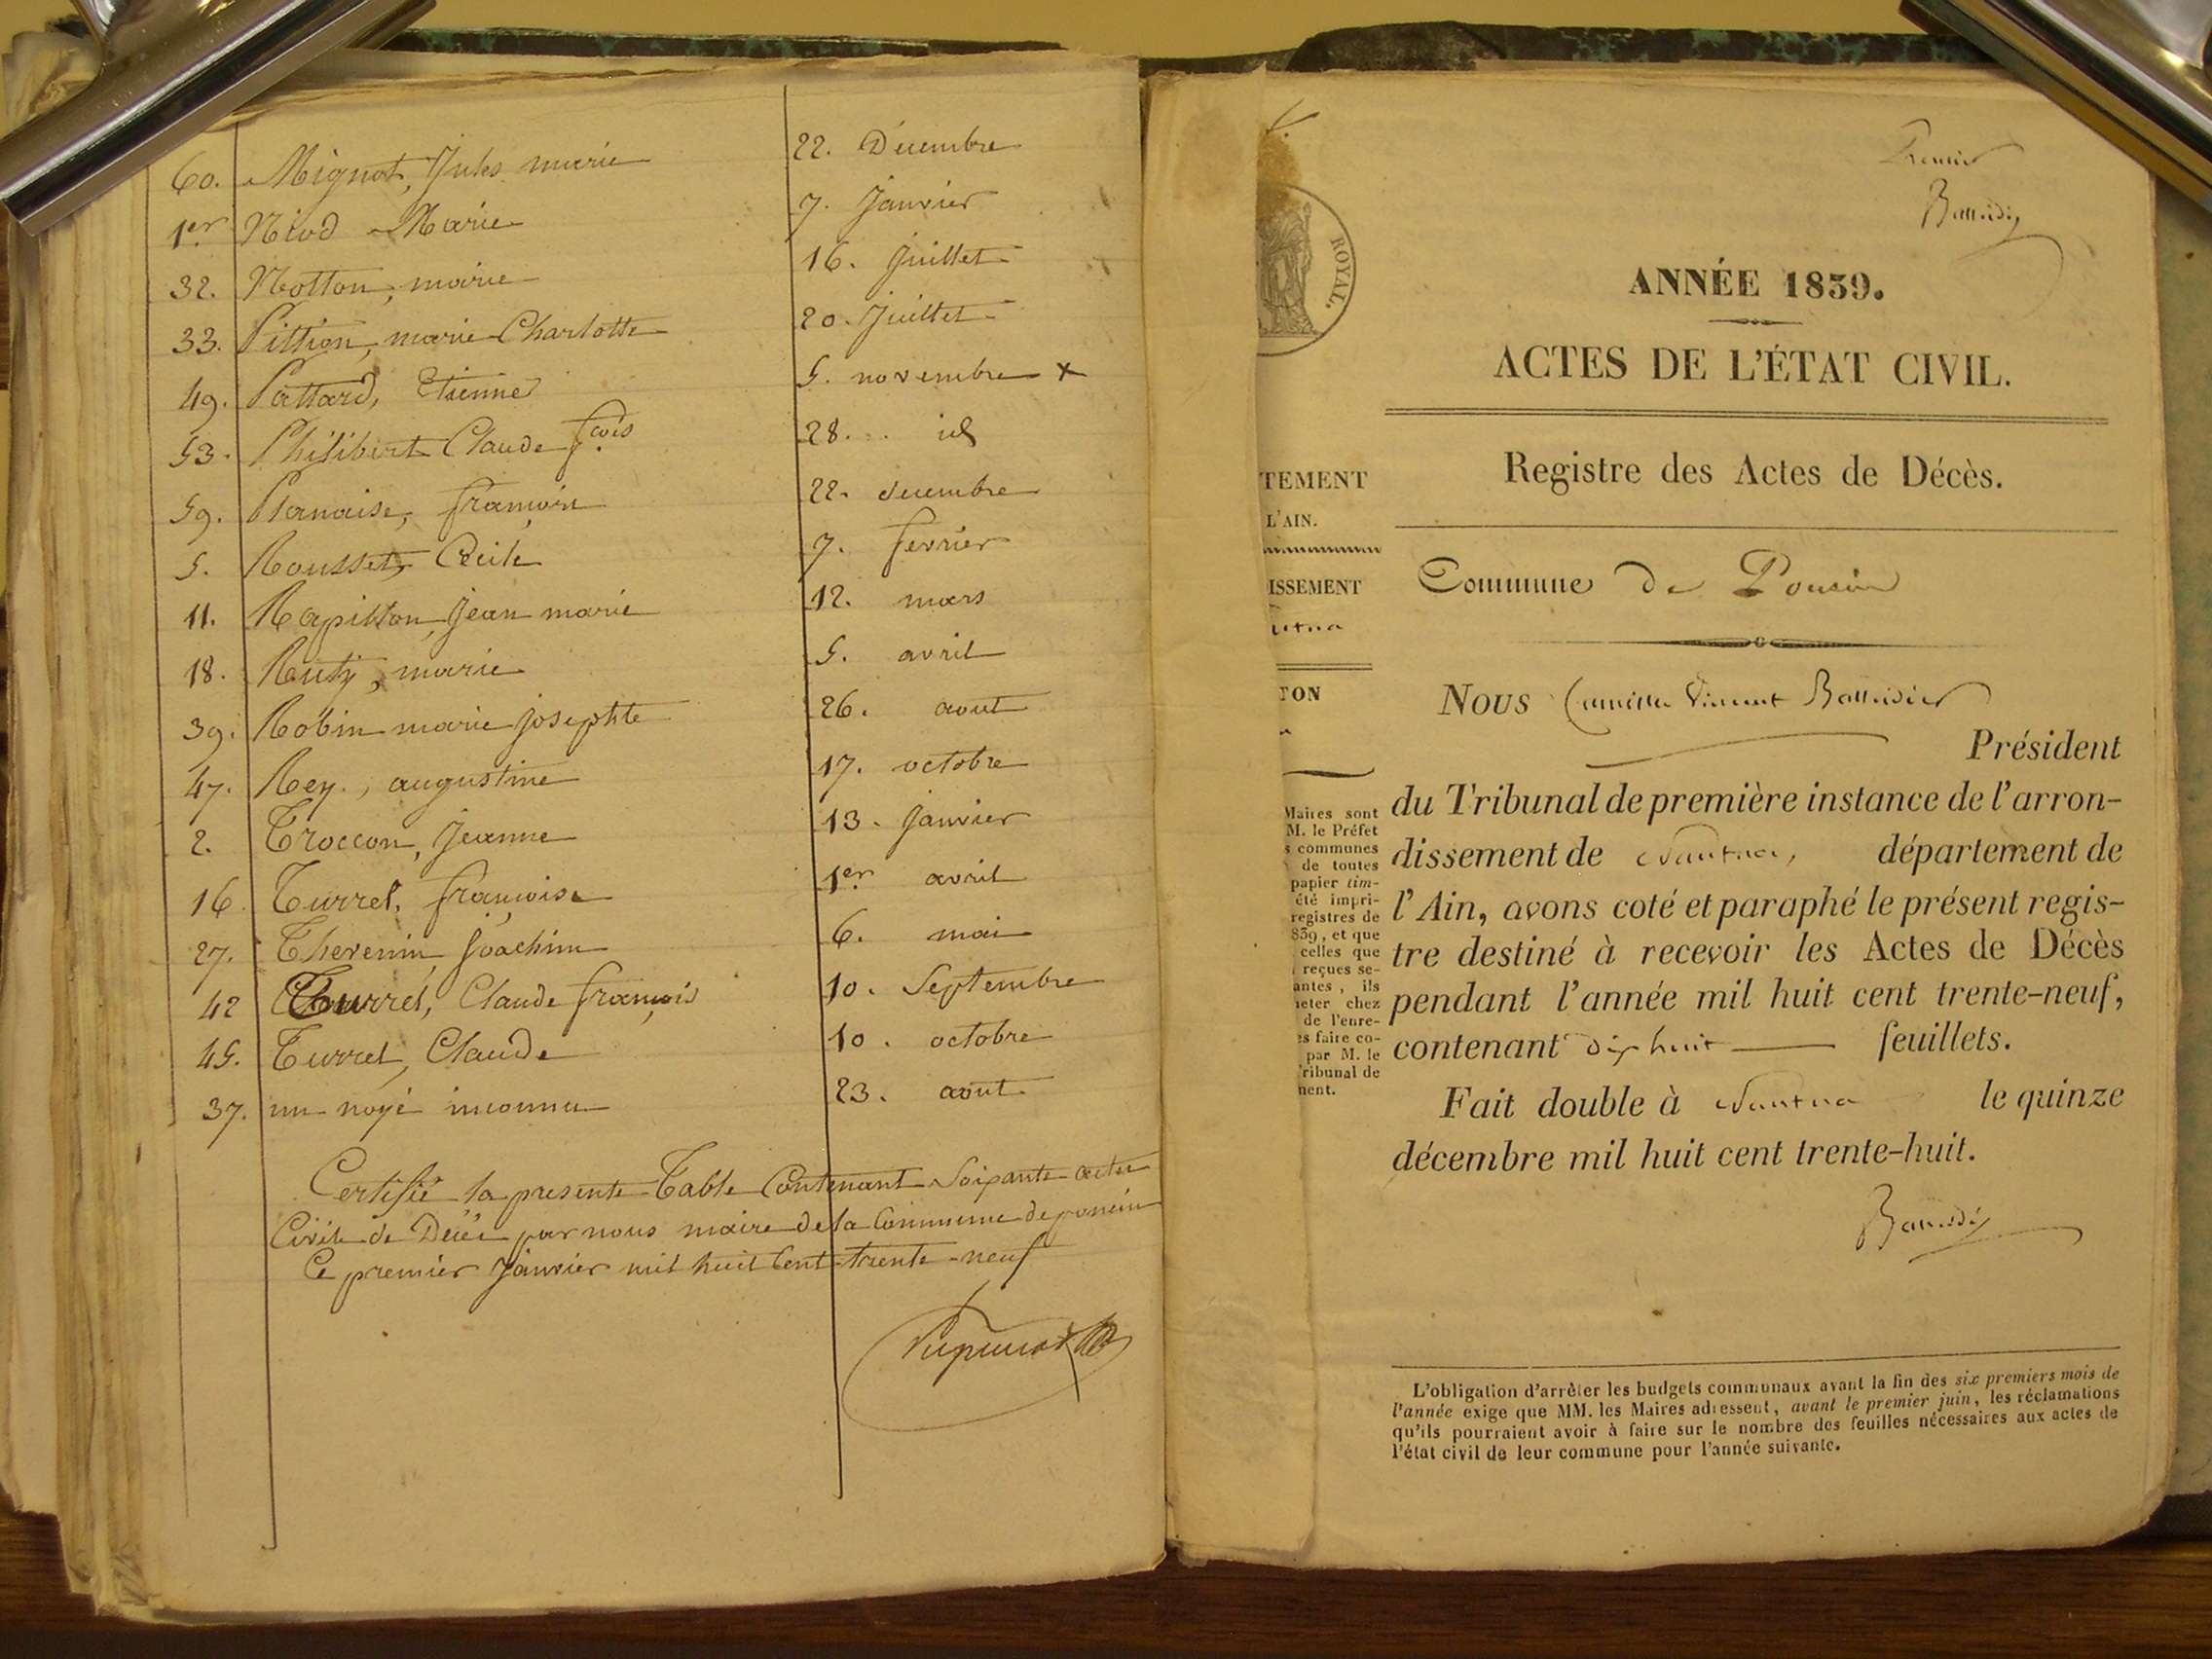 60. Mignot, Jules marie 22. Décembre
1er Niod Marie 7. Janvier
32. Notton, marie 16. Juillet
33. Pittion, marie Charlotte 20. Juillet
49. Pattard, Etienne 5. novembre x
53. Philibert Claude fcois 28. id
59. Planaise, françoise 22. decembre
5. Rousset, Cécile 7. fevrier
11. Rapillon, Jean marie 12. mars
18. Ruty, marie 5. avril
39. Robin marie josephte 26. aout
47. Rey, augustine 17. octobre
2. Troccon, Jeanne 13. Janvier
16 Turrel, françoise 1er avril
27. Thevenin Joachim 6. mai
42 Turrel, Claude françois 10. Septembre
45. Turrel, Claude 10. octobre
37. un noyé inconnu 23. aout
Certifié la presente Table Contenant Soixante actes
Civils de Décès par nous maire de la Commune de poncin
Ce premier Janvier mil huit Cent trente-neuf
Premier
ROYAL.
ANNÉE 1839.
ACTES DE L'ÉTAT CIVIL.
Registre des Actes de Décès.
TEMENT
L'AIN.
ISSEMENT
utua
TON
Maires sont
M. le Préfet
s communes
de toutes
papier tim-
été impri-
registres de
839, et que
celles que
reçues se-
antes, ils
eter chez
de l'enre-
es faire co-
par M. le
ribunal de
nent.
Commune de Poncin
NOUS Camille Vincent Balleidier
Président
du Tribunal de première instance de l'arron-
dissement de Nantua, département de
l'Ain, avons coté et paraphé le présent regis-
tre destiné à recevoir les Actes de Décès
pendant l'année mil huit cent trente-neuf,
contenant dix huit feuillets.
Fait double à Nantua le quinze
décembre mil huit cent trente-huit.
L'obligation d'arrêter les budgets communaux avant la fin des six premiers mois de
l'année exige que MM. les Maires adressent, avant le premier juin, les réclamations
qu'ils pourraient avoir à faire sur le nombre des feuilles nécessaires aux actes de
l'état civil de leur commune pour l'année suivante.